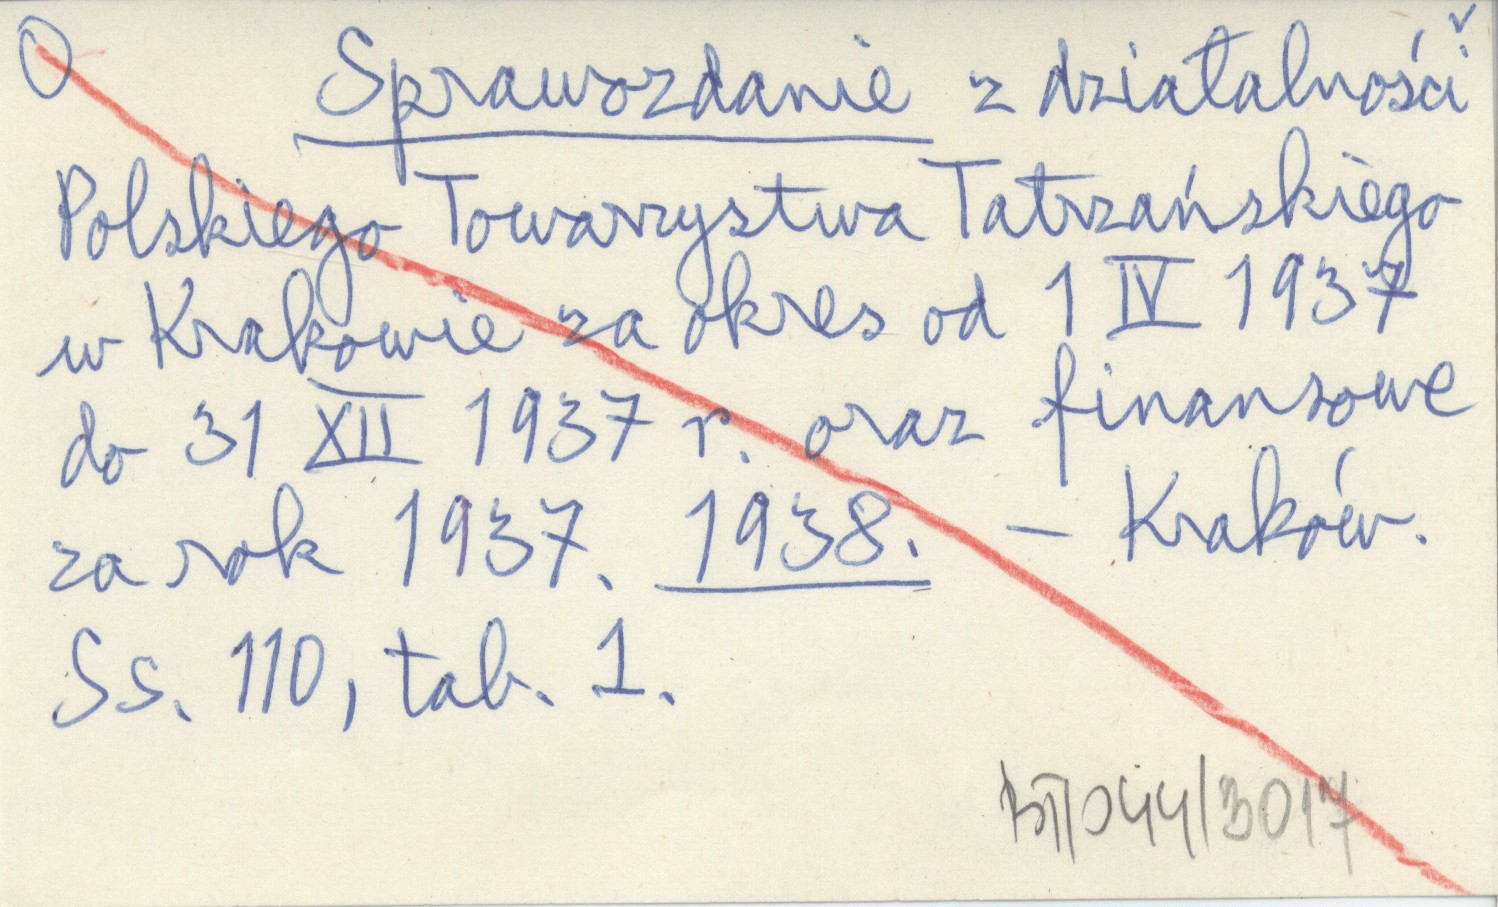 O Sprawozdanie z działalności
Polskiego Towarzystwa Tatrzańskiego
w Krakowie za okres od 1 IV 1937
do 31 XII 1937 r. oraz finansowe
za rok 1937. 1938. – Kraków.
Ss. 110, tab. 1.
044/3017